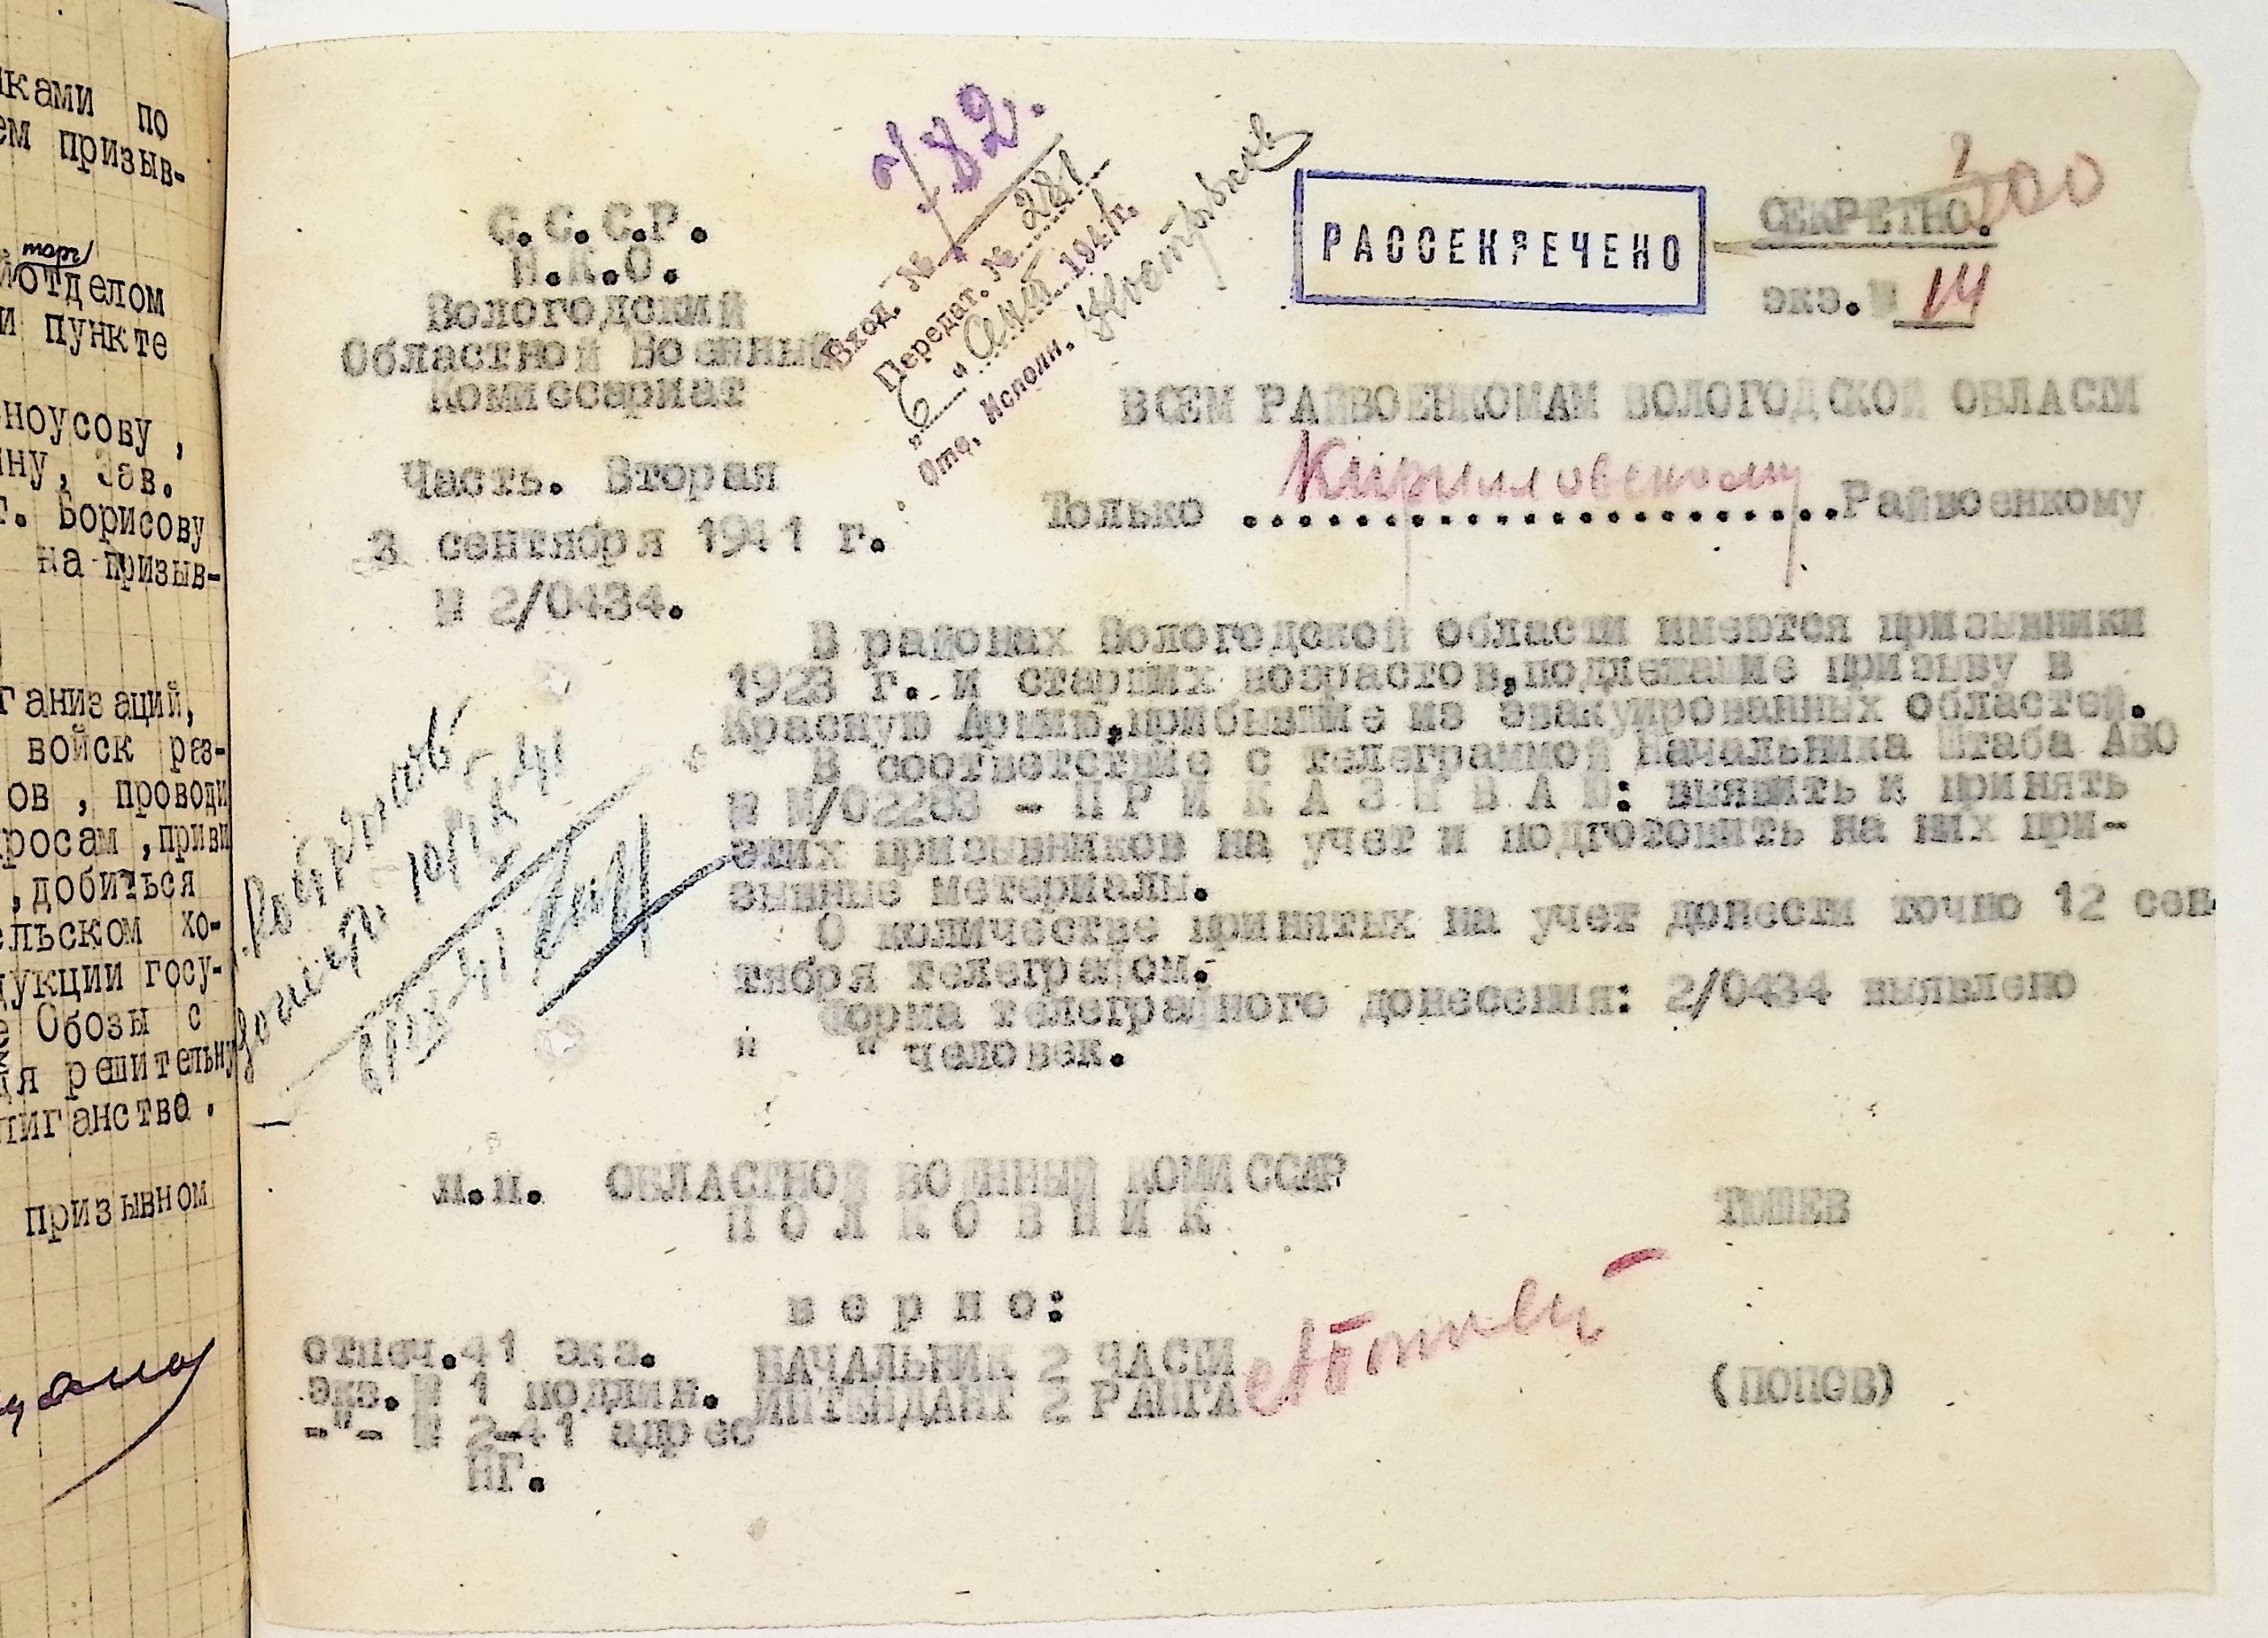 ками по
ем призыв-
отделом
и пункте
ноусову,
ну, Зав.
г. Борисову
на призыв-
ганизаций,
войск раз-
ов , проводи
росам ,приви
,добиться
ельском хо-
дукции госу-
е Обозы с
дя решительну
лиганство.
призывном
С.С.С.Р.
Н.К.О.
Вологодский
Областной Военный
Комиссариат
Часть. Вторая
3 сентября 1941 г.
№ 2/0434.
с/82.
Вход. №
Передат. № 281
"6" 1941г.
Отд. Исполн.
РАССЕКРЕЧЕНО
СЕКРЕТНО.
200
экз.№ 14
ВСЕМ РАЙВОЕНКОМАМ ВОЛОГОДСКОЙ ОБЛАСТИ
Только Кирилловскому Райвоенкому
В районах Вологодской области имеются призывники
1923 г. и старших возрастов,подлежащие призыву в
Красную Армию,прибывшие из эвакуированных областей.
В соответствие с телеграммой Начальника Штаба АВО
№ М/02283 - П Р И К А З Ы В А Ю: выявить и принять
этих призывников на учет и подготовить на них при-
зывные материалы.
О количестве принятых на учет донести точно 12 сен
тября телеграфом.
Форма телеграфного донесения: 2/0434 выявлено
" " человек.
п.п. ОБЛАСТНОЙ ВОЕННЫЙ КОМИССАР
П О Л К О В Н И К
ТЮШЕВ
в е р н о:
отпеч.41 экз.
экз.№ 1 подлин.
-"- № 2-41 адрес
ПГ.
НАЧАЛЬНИК 2 ЧАСТИ
ИНТЕНДАНТ 2 РАНГА
(ПОПОВ)